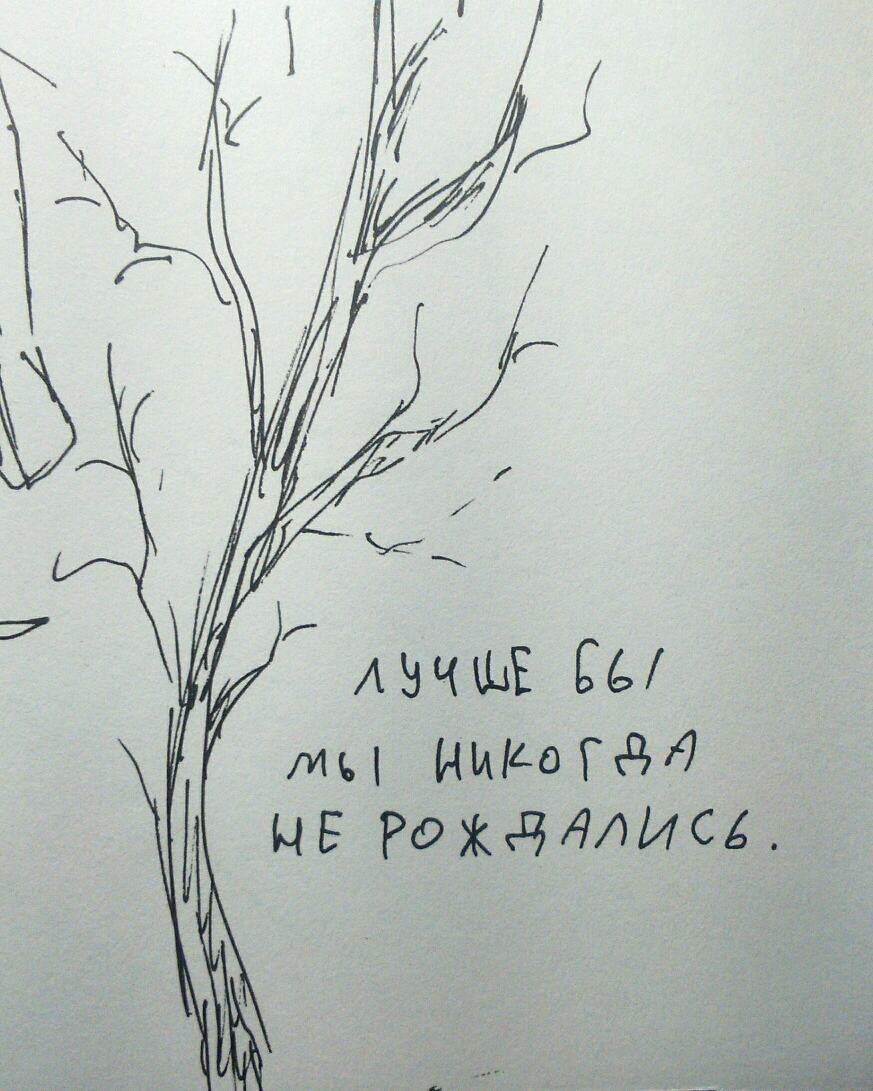 ЛУЧШЕ БЫ
МЫ НИКОГДА
НЕ РОЖДАЛИСЬ.